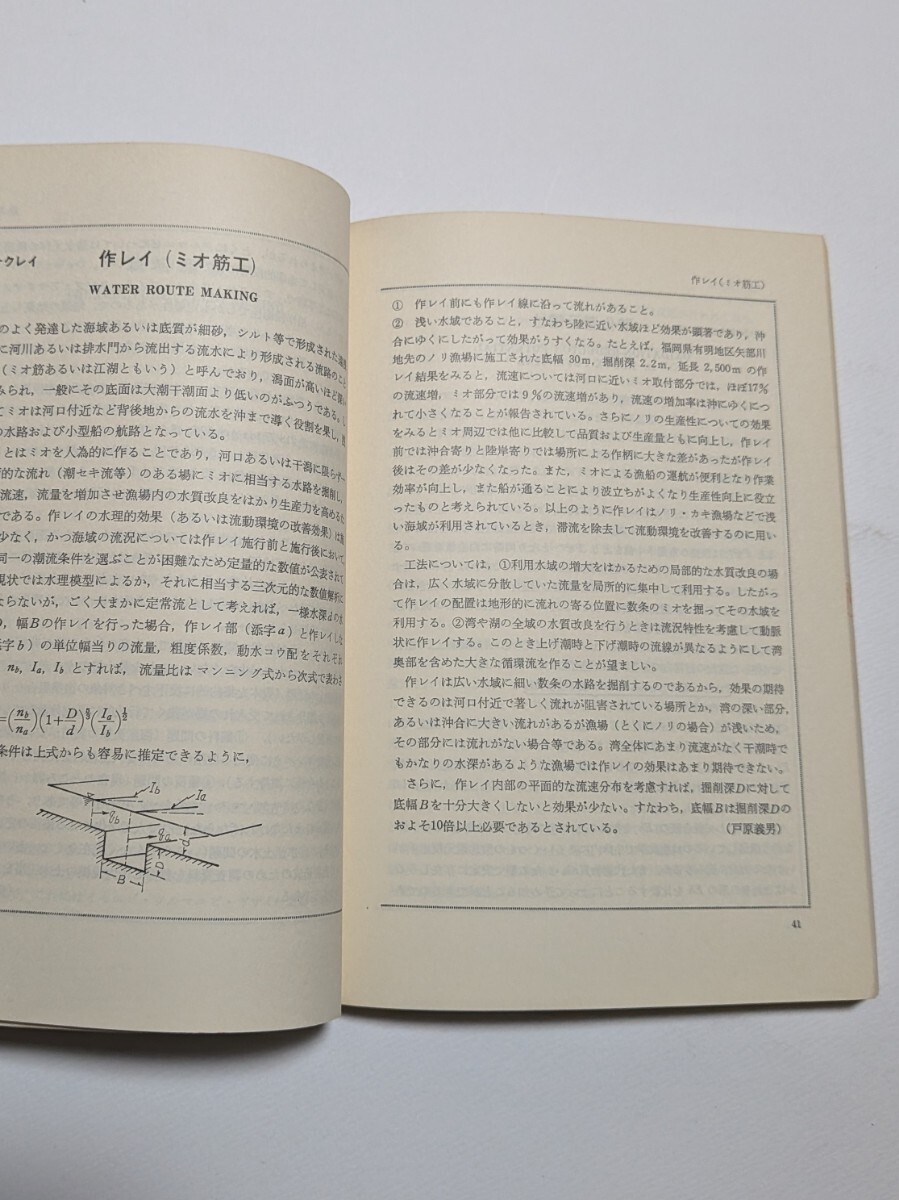 クレイ
作レイ (ミオ筋工)
WATER ROUTE MAKING
のよく発達した海域あるいは底質が細砂,シルト等で形成された
に河川あるいは排水門から流出する流水により形成される流路のこと
(ミオ筋あるいは江湖ともいう)と呼んでおり,潟面が高いほど
みられ,一般にその底面は大潮干潮面より低いのがふつうである。
てミオは河口付近など背後地からの流水を沖まで導く役割を果し,
の水路および小型船の航路となっている。
とはミオを人為的に作ることであり,河口あるいは干潟に限らず
的な流れ(潮セキ流等)のある場にミオに相当する水路を掘削し,
流速,流量を増加させ漁場内の水質改良をはかり生産力を高めるた
である。作レイの水理的効果(あるいは流動環境の改善効果)は
少なく,かつ海域の流況については作レイ施行前と施行後において
同一の潮流条件を選ぶことが困難なため定量的な数値が公表されて
現状では水理模型によるか,それに相当する三次元的な数値解析に
ならないが,ごく大まかに定常流として考えれば,一様水深dの
,幅Bの作レイを行った場合,作レイ部(添字a)と作レイしな
字b)の単位幅当りの流量,粗度係数,動水コウ配をそれぞれ
nb, Ia, Ib とすれば,流量比は マンニング式から次式で表わさ
=(nb/na)(1+D/d)^5/3(Ia/Ib)^1/2
条件は上式からも容易に推定できるように,
Ib
Ia
qb
qa
d
D
B
作レイ(ミオ筋工)
① 作レイ前にも作レイ線に沿って流れがあること。
② 浅い水域であること,すなわち陸に近い水域ほど効果が顕著であり,沖
合にゆくにしたがって効果がうすくなる。たとえば,福岡県有明地区矢部川
地先のノリ漁場に施工された底幅 30m,掘削深 2.2m,延長 2,500m の作
レイ結果をみると,流速については河口に近いミオ取付部分では,ほぼ17%
の流速増,ミオ部分では9%の流速増があり,流速の増加率は沖にゆくにつ
れて小さくなることが報告されている。さらにノリの生産性についての効果
をみるとミオ周辺では他に比較して品質および生産量ともに向上し,作レイ
前では沖合寄りと陸岸寄りでは場所による作柄に大きな差があったが作レイ
後はその差が少なくなった。また,ミオによる漁船の運航が便利となり作業
効率が向上し,また船が通ることにより波立ちがよくなり生産性向上に役立
ったものと考えられている。以上のように作レイはノリ・カキ漁場などで浅
い海域が利用されているとき,滞流を除去して流動環境を改善するのに用い
る。
工法については,①利用水域の増大をはかるための局部的な水質改良の場
合は,広く水域に分散していた流量を局所的に集中して利用する。したがっ
て作レイの配置は地形的に流れの寄る位置に数条のミオを掘ってその水域を
利用する。②湾や湖の全域の水質改良を行うときは流況特性を考慮して動脈
状に作レイする。このとき上げ潮時と下げ潮時の流線が異なるようにして湾
奥部を含めた大きな循環流を作ることが望ましい。
作レイは広い水域に細い数条の水路を掘削するのであるから,効果の期待
できるのは河口付近で著しく流れが阻害されている場所とか,湾の深い部分,
あるいは沖合に大きい流れがあるが漁場(とくにノリの場合)が浅いため,
その部分には流れがない場合等である。湾全体にあまり流速がなく干潮時で
もかなりの水深があるような漁場では作レイの効果はあまり期待できない。
さらに,作レイ内部の平面的な流速分布を考慮すれば,掘削深Dに対して
底幅Bを十分大きくしないと効果が少ない。すなわち,底幅Bは掘削深Dの
およそ10倍以上必要であるとされている。 (戸原義男)
41